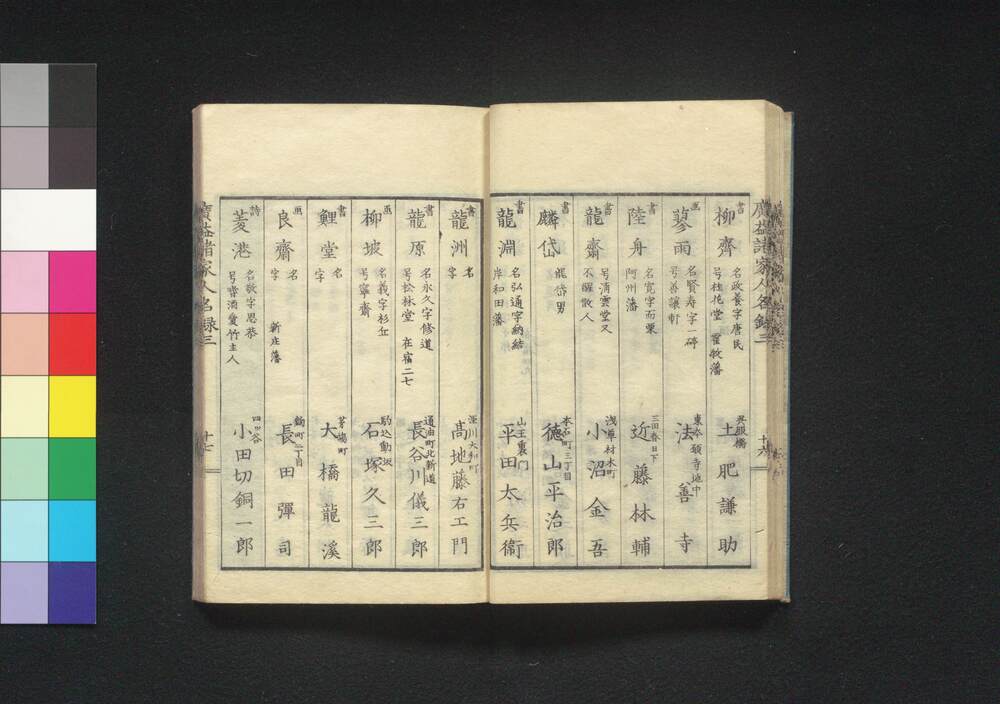 廣益諸家人名録三
十六
書 柳齋 名政養字唐民 号桂花堂 藩 呉服橋 土肥謙助
画 蓼雨 名賢寿字一碩 号善讓軒 東本願寺地中 法善寺
書 陸舟 名寛字而栗 阿州藩 三田春日下 近藤林輔
書 龍齋 号消雲堂又 不醒散人 浅草材木町 小沼金吾
書 麟岱 龍岱男 本石町三丁目 德山平治郎
書 龍淵 名弘通字納結 岸和田藩 山王裏門 平田太兵衞
書 龍洲 名 字 深川大和町 髙地藤右エ門
書 龍原 名永久字修道 号松林堂 在宿二七 通油町北新道 長谷川儀三郎
画 柳坡 名義字杉丘 号寧齋 駒込動坂 石塚久三郎
書 鯉堂 名 字 茅場町 大橋龍溪
画 良齋 名 字 新庄藩 麹町二丁目 長田彈司
詩 菱港 名敬字思恭 号 愛竹主人 四ッ谷 小田切銅一郎
廣益諸家人名録三
十七